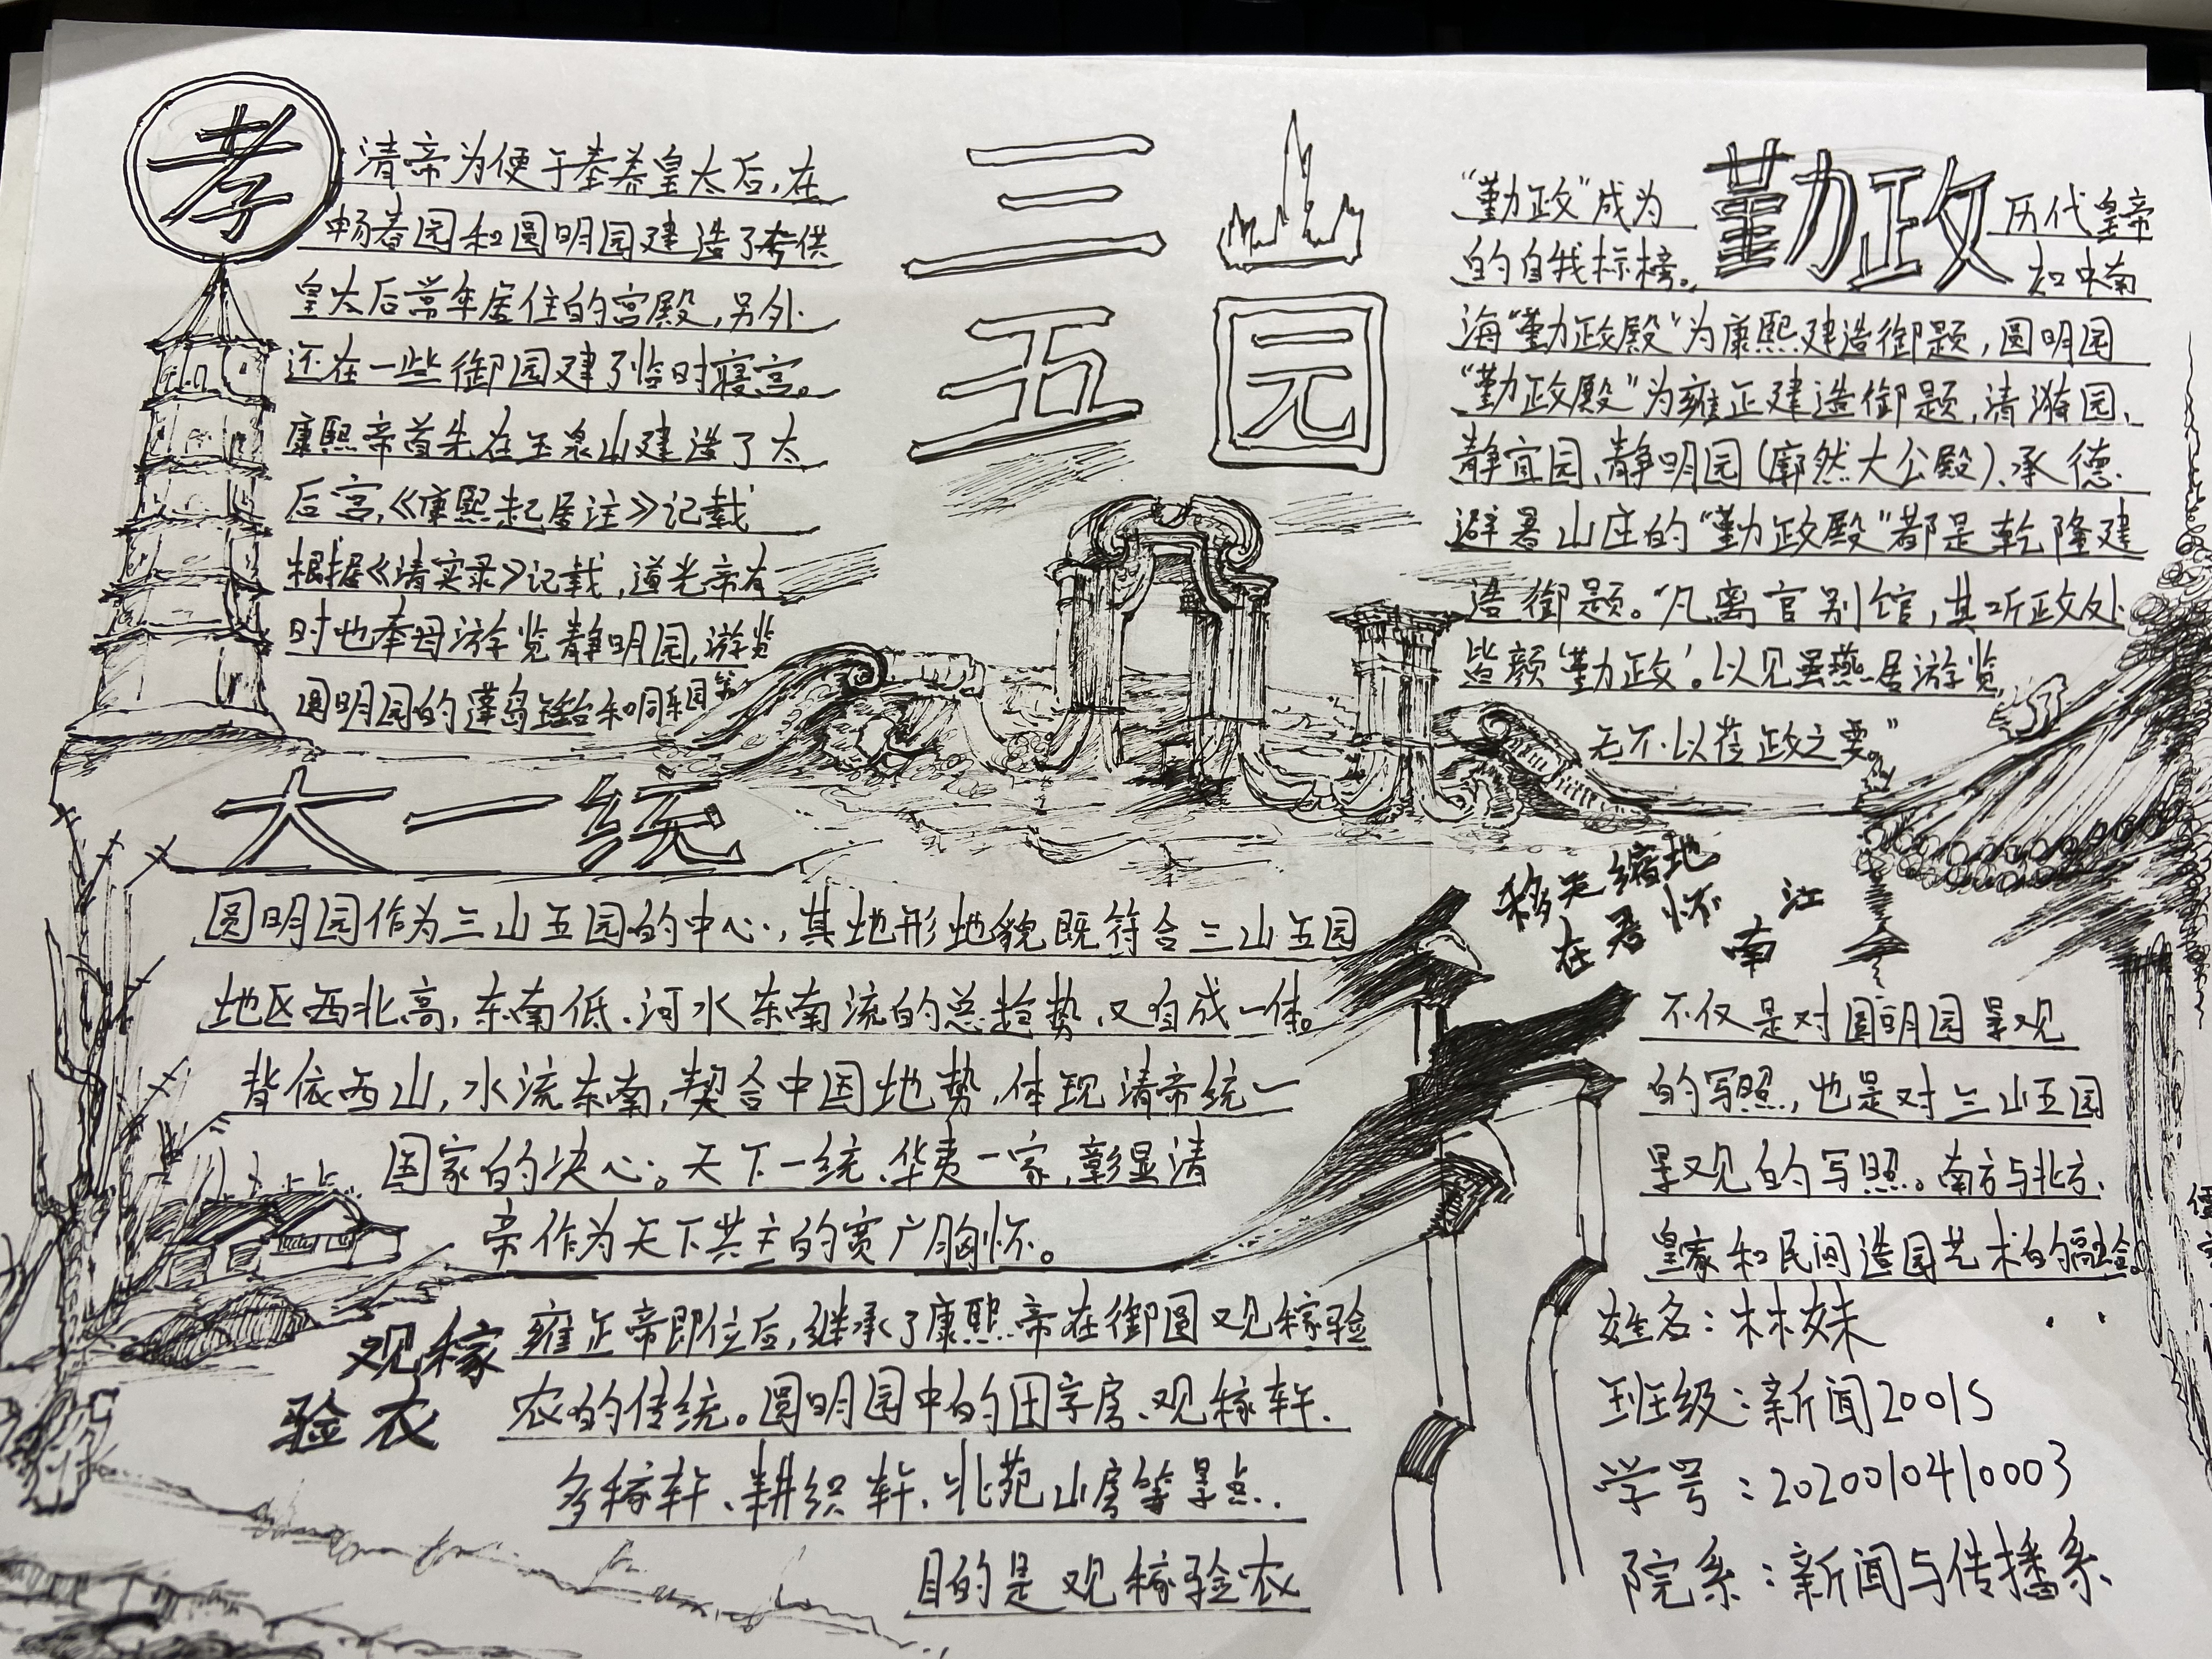 三山
五园
孝
清帝为便于奉养皇太后,在
畅春园和圆明园建造了专供
皇太后常年居住的宫殿,另外
还在一些御园建了临时寝宫。
康熙帝首先在玉泉山建造了太
后宫,《康熙起居注》记载
根据《清实录》记载,道光帝有
时也奉母游览静明园,游览
圆明园的蓬岛瑶台和同乐园等
勤政
“勤政”成为
历代皇帝
的自我标榜。
和中南
海“勤政殿”为康熙建造御题,圆明园
“勤政殿”为雍正建造御题,清漪园、
静宜园、静明园(廓然大公殿)、承德
避暑山庄的“勤政殿”都是乾隆建
造御题。“凡离宫别馆,其听政处
皆颜‘勤政’。以见虽燕居游览
无不以莅政之要。”
大一统
圆明园作为三山五园的中心,其地形地貌既符合三山五园
地区西北高,东南低、河水东南流的总趋势,又自成一体。
背依西山,水流东南,契合中国地势,体现清帝统一
国家的决心。天下一统、华夷一家,彰显清
帝作为天下共主的宽广胸怀。
移天缩地
在君怀
江
南
不仅是对圆明园景观
的写照,也是对三山五园
景观的写照。南方与北方、
皇家和民间造园艺术的融合。
观稼
验农
雍正帝即位后,继承了康熙帝在御园观稼验
农的传统。圆明园中的田字房、观稼轩、
多稼轩、耕织轩、北苑山房等景点.
目的是观稼验农
姓名:林妹
班级:新闻2001S
学号:2020010410003
院系:新闻与传播系